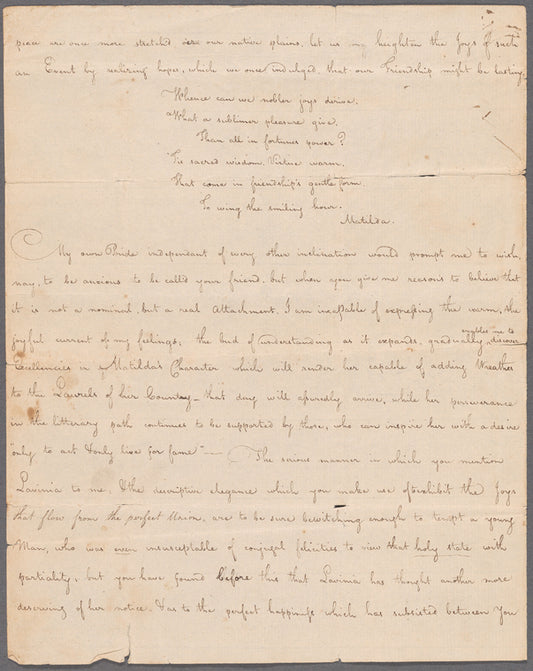 peace are once more stretched oer our native plains, let us my heighten the Joys of such
an Event by realizing hopes, which we once indulged, that our Friendship might be lasting.
Whence can we nobler joys derive.
"What a sublimer pleasure give.
Than all in fortunes power?
'Tis sacred wisdom, Virtue warm,
That come in friendship's gentle form
To wing the smiling hour.
Matilda.
My own Pride independant of every other inclination would prompt me to wish,
nay, to be anxious to be called your friend, but when you give me reasons to believe that
it is not a nominal, but a real Attachment, I am incapable of expressing the warm, the
joyful current of my feelings; the bud of understanding as it expands, gradually enables me to discover
Excellencies in Matilda's Character which will render her capable of adding Wreathes
to the Laurels of her Country – that day will assuredly arrive, while her perseverance
in the litterary path continues to be supported by those, who can inspire her with a desire
"only to act & only live for fame" — The serious manner in which you mention
Lavinia to me, & the descriptive elegance which you make use of to exhibit the Joys
that flow from the perfect Union, are to be sure bewitching enough to tempt a young
Man, who was even unsusceptable of conjugal felicities to view that holy state with
partiality, but you have found before this that Lavinia has thought another more
deserving of her notice. & as to the perfect happiness which has subsisted between you